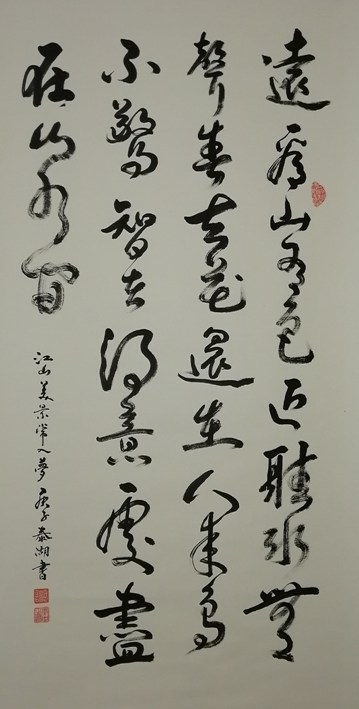 遠看山有色近聽水無
聲春去花還在人來鳥
不驚智者得意處盡
在山水間
江山美景常入夢庚子泰湖書